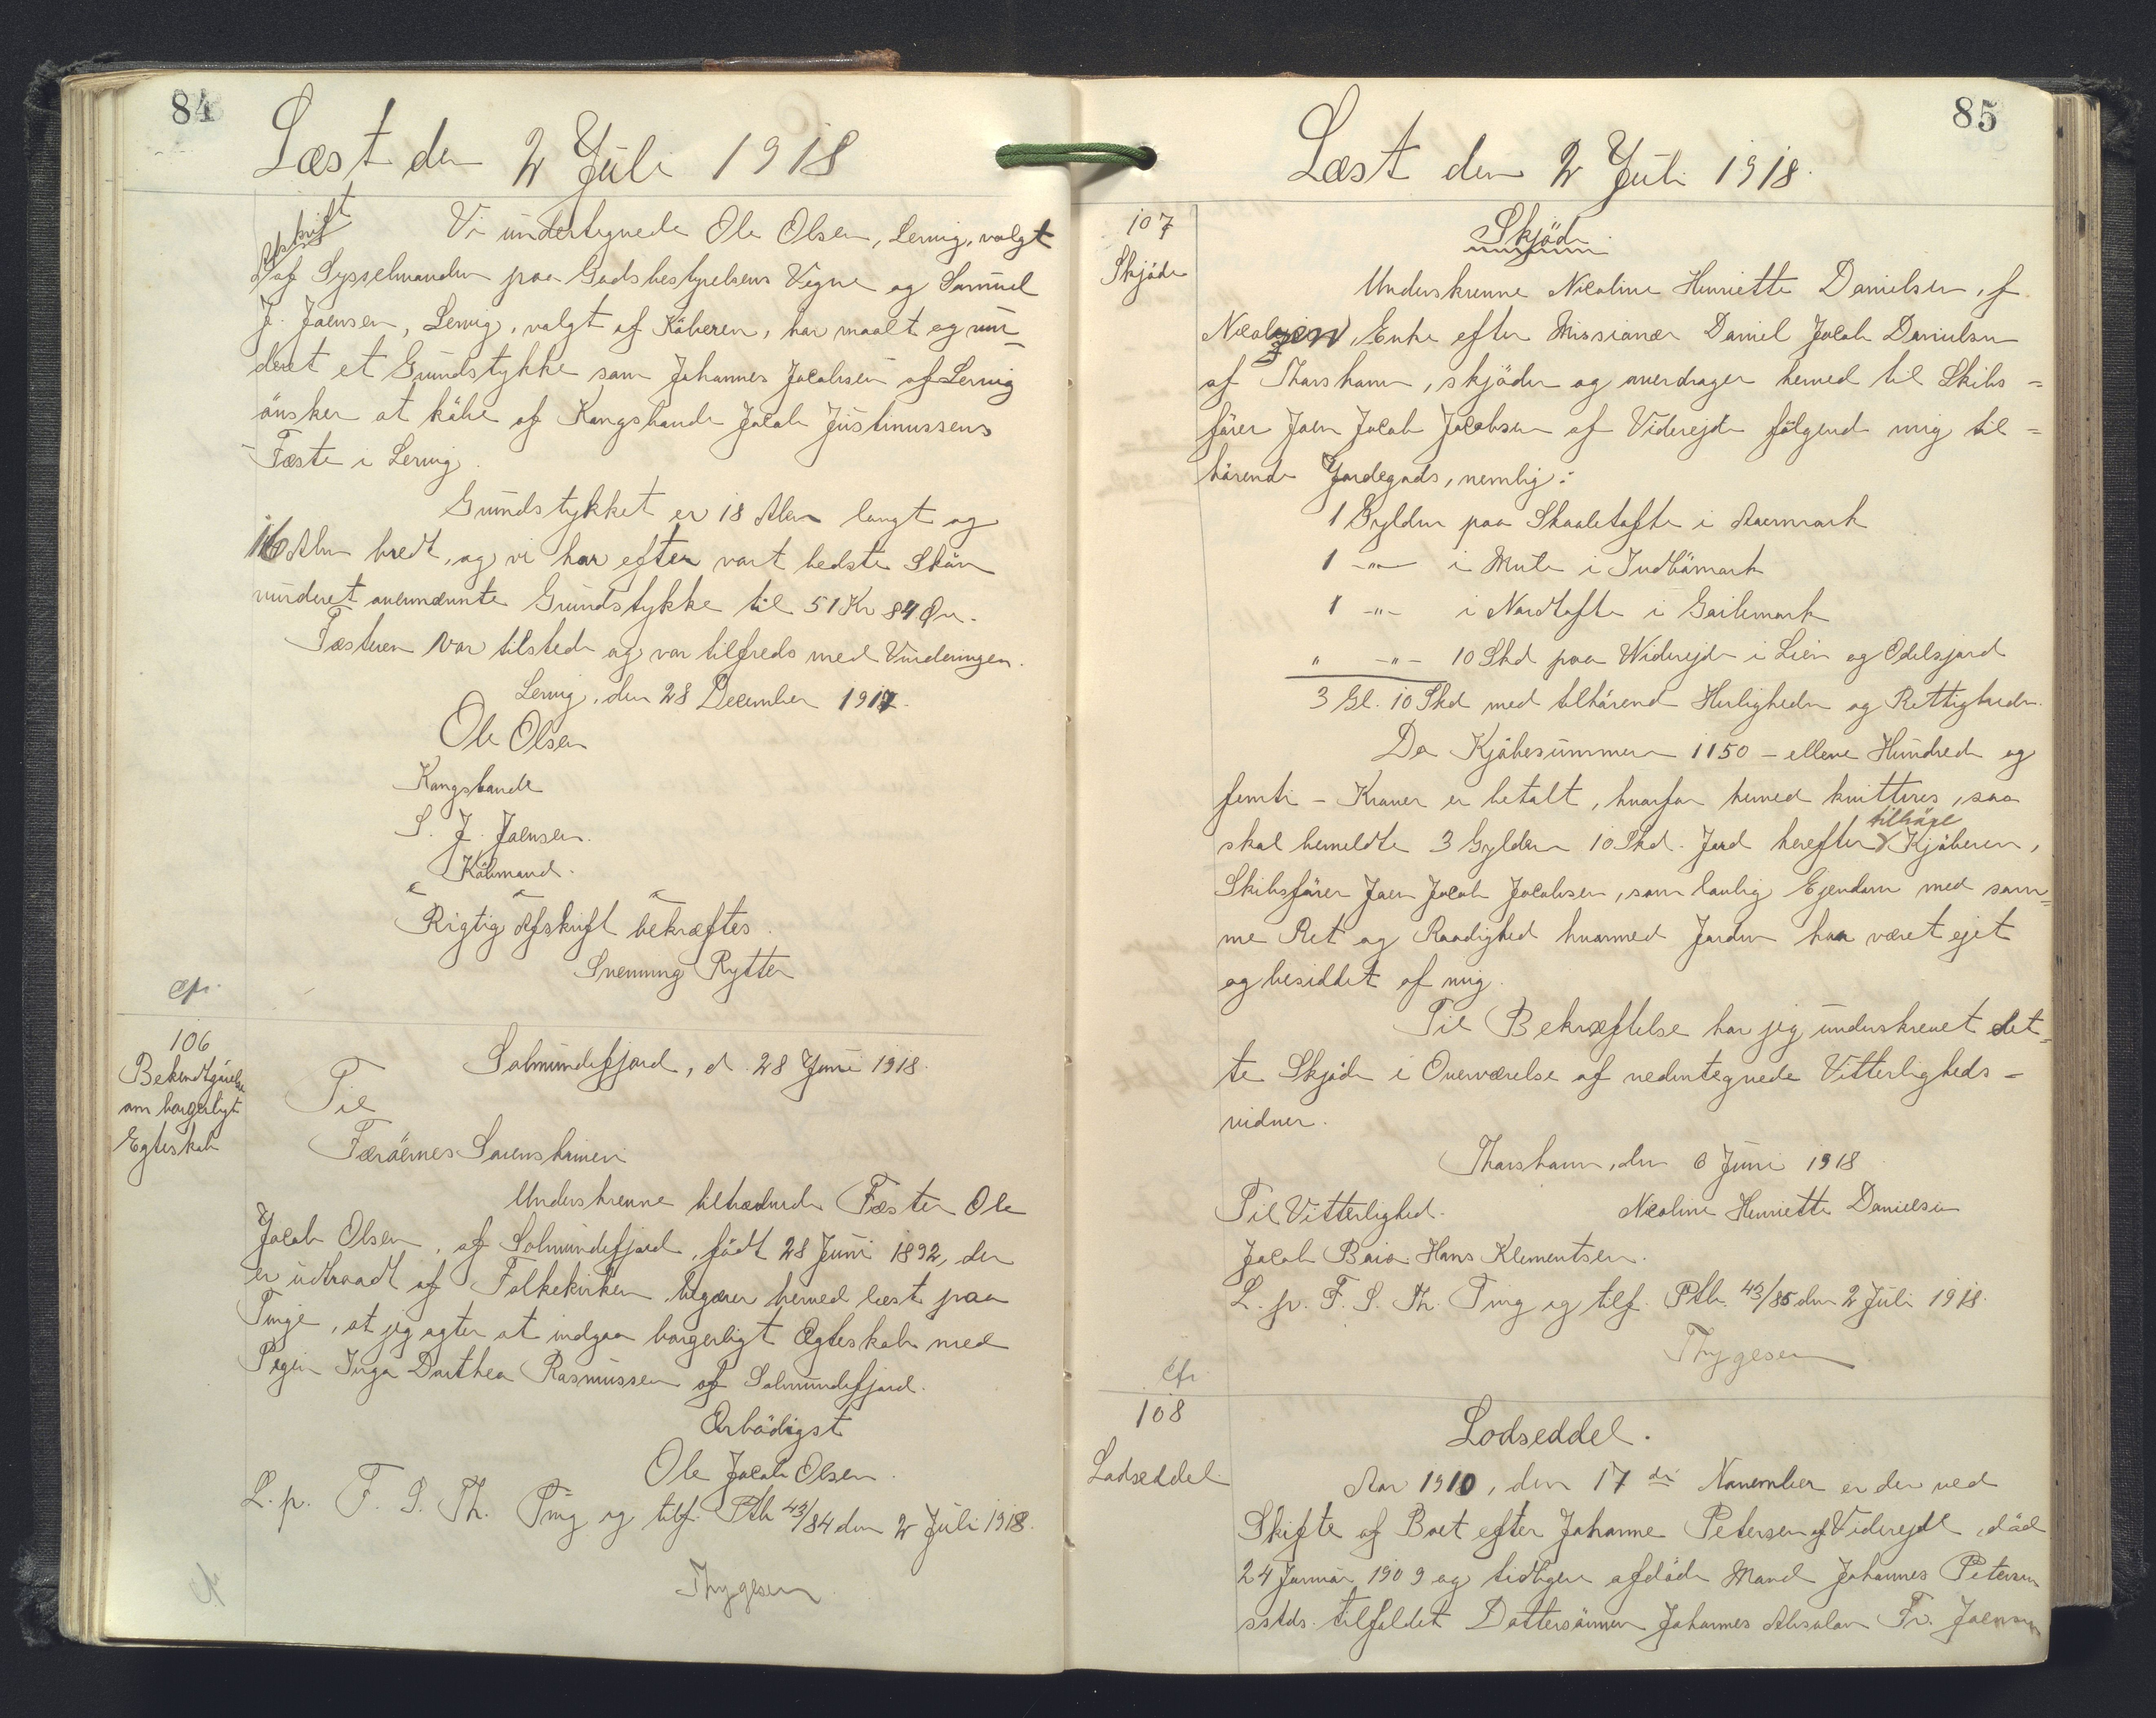 84
Læst den 2 Juli 1918
Afskrift
Vi undertegnede Ole Olsen, Lervig, valgt
af Sysselmanden paa Godsbestyrelsens Vegne og Samuel
J. Joensen, Lervig, valgt af Køberen, har maalt og vur-
deret et Grundstykke som Johannes Jacobsen af Lervig
ønsker at købe af Kongsbonde Jacob Justinussens
Fæste i Lervig.
Grundstykket er 18 Alen langt og
16 Alen bredt, og vi har efter vort bedste Skøn
vurderet ovennævnte Grundstykke til 51 Kr 84 Øre.
Fæsteren var tilstede og var tilfreds med Vurderingen.
Lervig, den 28 December 1917.
Ole Olsen
Kongsbonde
S. J. Joensen.
Købmand.
Rigtig Afskrift bekræftes.
Svenning Rytter
cfr.
106
Bekendtgørelse
om borgerligt
Egteskab
Solmundefjord, d. 28 Juni 1918.
Til
Færøernes Sorenskriver
Underskrevne tiltrædende Fæster Ole
Jacob Olsen, af Solmundefjord, født 28 Juni 1892, der
er udtraadt af Folkekirken begærer herved læst paa
Tinge, at jeg agter at indgaa borgerligt Ægteskab med
Pigen Inga Dorthea Rasmussen af Solmundefjord.
Ærbødigst
Ole Jacob Olsen.
L. p. F. S. Th. Ting og tilf. Ptb 43/84 den 2 Juli 1918.
Thygesen
cfr
85
Læst den 2 Juli 1918.
107
Skjøde
Skjøde
Underskrevne Nicoline Henriette Danielsen, f.
Nicolajsen, Enke efter Missionær Daniel Jacob Danielsen
af Thorshavn, skjøder og overdrager herved til Skibs=
fører Joen Jacob Jacobsen af Viderejde følgende mig til=
hørende Jordegods, nemlig:
1 Gylden paa Skaaletofte i Aaermark
1 -"- i Mute i Indbømark
1 -"- i Nordtofte i Gaitemark
" -"- 10 Skd paa Widerejde i Lien og Odelsjord
3 Gl. 10 Skd med tilhørende Herligheder og Rettigheder.
Da Kjøbesummen 1150 - elleve Hundrede og
femti - Kroner er betalt, hvorfor herved kvitteres, saa
skal bemeldte 3 Gylden 10 Skd. Jord herefter tilhøre Kjøberen,
Skibsfører Joen Jacob Jacobsen, som lovlig Ejendom med sam=
me Ret og Raadighed hvormed Jorden har været ejet
og besiddet af mig.
Til Bekræftelse har jeg underskrevet det=
te Skjøde i Overværelse af nedentegnede Vitterligheds-
vidner.
Thorshavn, den 6 Juni 1918
Til Vitterlighed. Nicoline Henriette Danielsen
Jacob Bois. Hans Klementsen.
L. p. F. S. Th. Ting og tilf. Ptb. 43/85 den 2 Juli 1918.
Thygesen
cfr.
108
Lodseddel
Lodseddel.
Aar 1910, den 17de November er der ved
Skifte af Boet efter Johanne Petersen af Viderejde, død
24 Januar 1909 og tidligere afdøde Mand Johannes Petersen
sstds. tilfaldet Dattersønnen Johannes Absalon Fr. Joensen